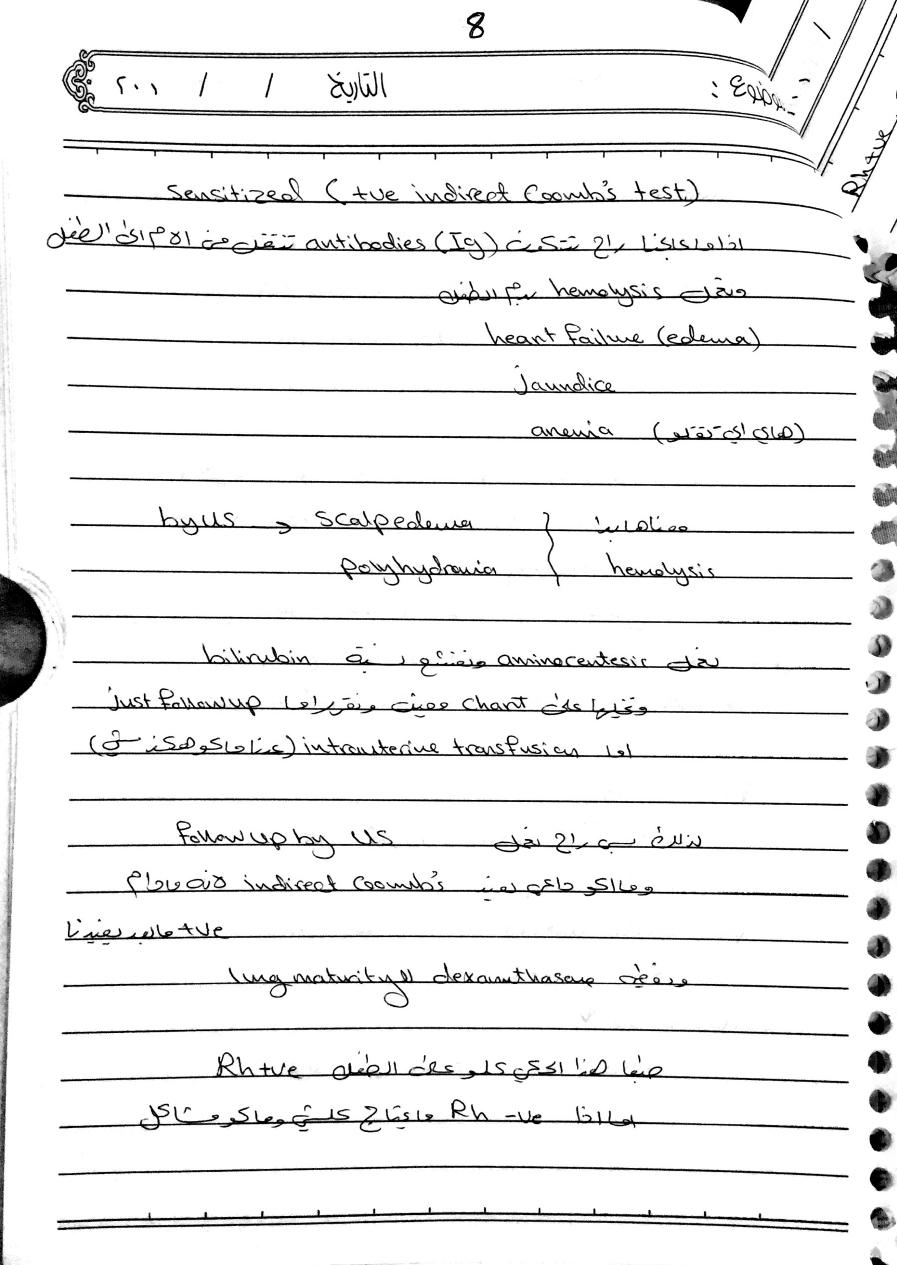 8
الموضوع : التاريخ / / ٢٠٠١
Rh+ve
Sensitized (+ve indirect Coomb's test)
اذا ماعالجنا راح تتكون antibodies (Ig) تنتقل من الام الى الطفل
وتعمل hemolysis بدم الطفل
heart failure (edema)
jaundice
anemia (هاي اي تقتلو)
by US → scalp edema } معناها بدا
polyhydramia } hemolysis
نعمل aminocentesis ونفتش نسبة bilirubin
ونخليها على chart معين ونقرر اما Just follow up
اما intrauterine transfusion (عدنا ماكو هكذ شي)
لذلك بس راح نعمل follow up by US
وماكو داعي نعيد indirect Coomb's لانه مادام
+ve مايفيدنا
ونعطي dexamethasone لل lung maturity
طبعا هذا الحكي كلو على الطفل Rh+ve
اما اذا Rh -ve مايحتاج كلشي وماكو مشاكل